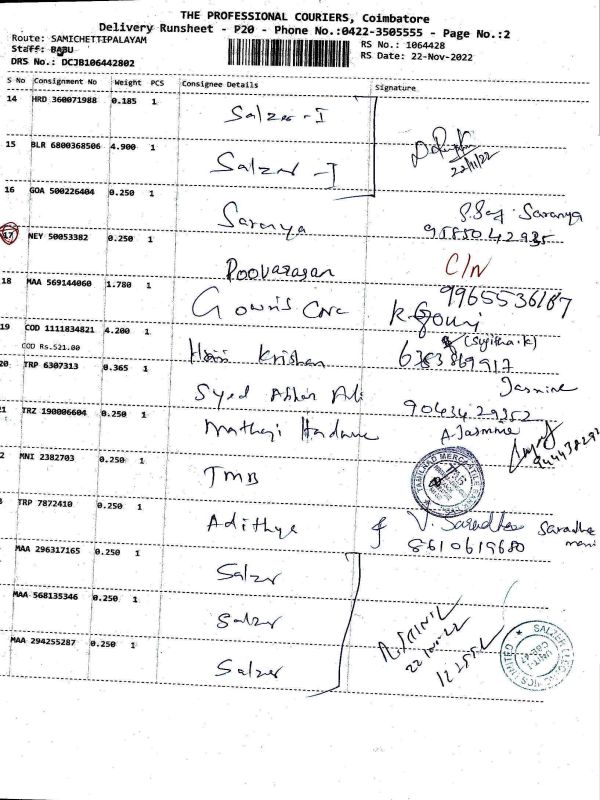 THE PROFESSIONAL COURIERS, Coimbatore
Delivery Runsheet - P20 - Phone No.:0422-3505555 - Page No.:2
Route: SAMICHETTIPALAYAM
Staff: BABU
DRS No.: DCJB106442802
RS No.: 1064428
RS Date: 22-Nov-2022
S No Consignment No Weight PCS Consignee Details Signature
14 HRD 360071988 0.185 1 Salzer-I
15 BLR 6800368506 4.900 1 Salzer-I
22/11/22
16 GOA 500226404 0.250 1 Saranya Saranya
9585042935
17 NEY 50053382 0.250 1 Poovarasan C/N
18 MAA 569144060 1.780 1 Gowris Care 9965536187
K. Gouri
19 COD 1111834821 4.200 1 Hari Krishan (Sujitha.K)
6383869917
COD Rs.521.00
20 TRP 6307313 0.365 1 Syed Ali Jasmine
9043429352
A. Jasmine
21 TRZ 190006604 0.250 1 Mathaji Hardware
22 MNI 2382703 0.250 1 TMB
TAMILNAD MERCANTILE BANK
TRP 7872410 0.250 1 Adithya V. Saradha Saradha mani
8610619680
MAA 296317165 0.250 1 Salzer
MAA 568135346 0.250 1 Salzer
MAA 294255287 0.250 1 Salzer
SALZER ELECTRONICS LIMITED
UNIT-I